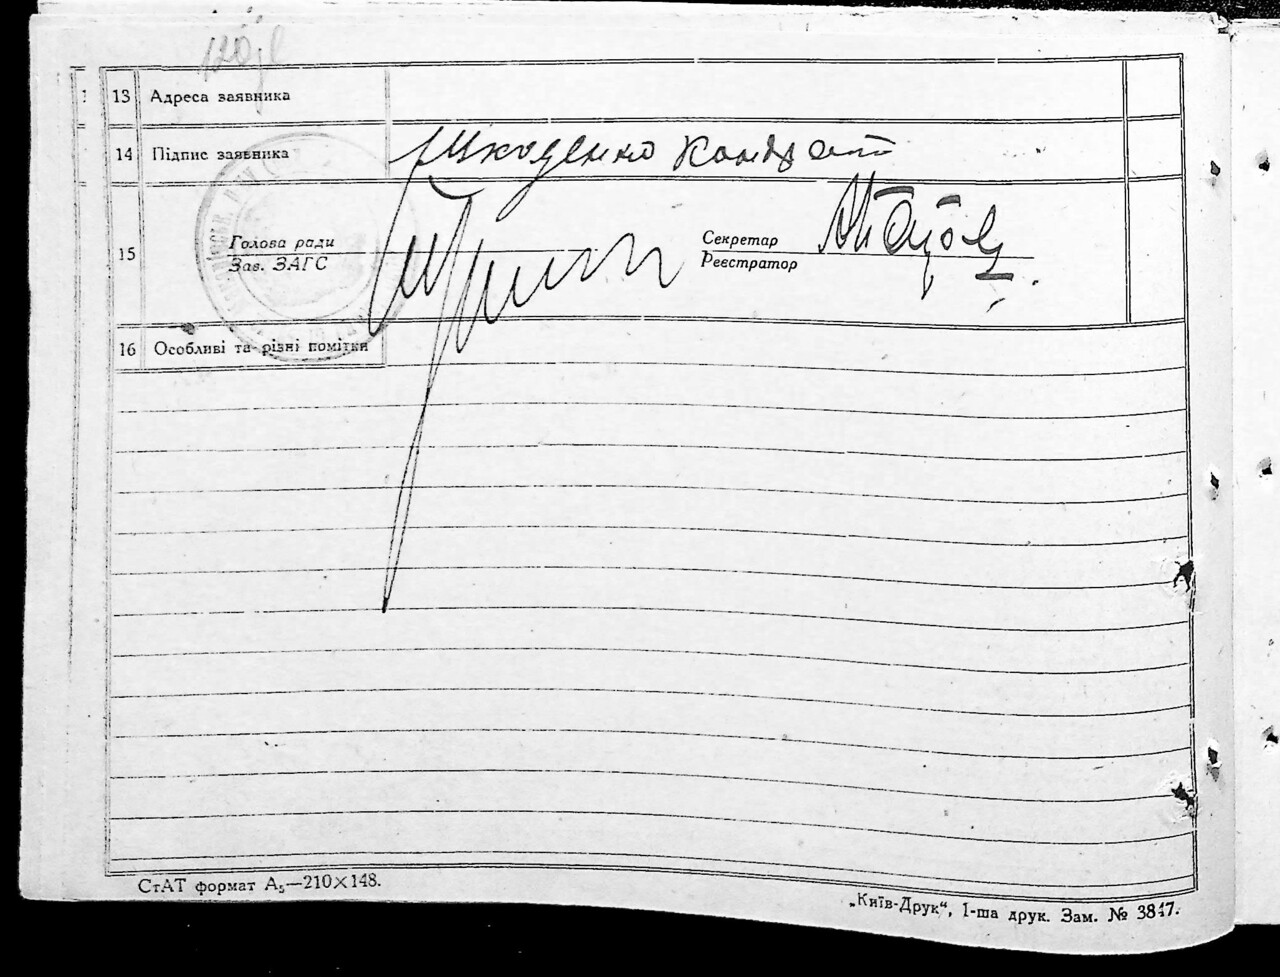 13 Адреса заявника
14 Підпис заявника Шкоденко Кондрат
15 Голова ради Секретар
Зав. ЗАГС Реєстратор
16 Особливі та різні помітки
СтАТ формат А₅—210×148.
„Київ-Друк“, 1-ша друк. Зам. № 3847.